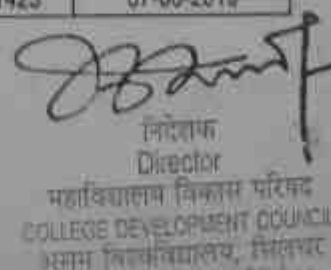 07-06-2016
निदेशक
Director
महाविद्यालय विकास परिषद
COLLEGE DEVELOPMENT COUNCIL
असम विश्वविद्यालय, सिलचर